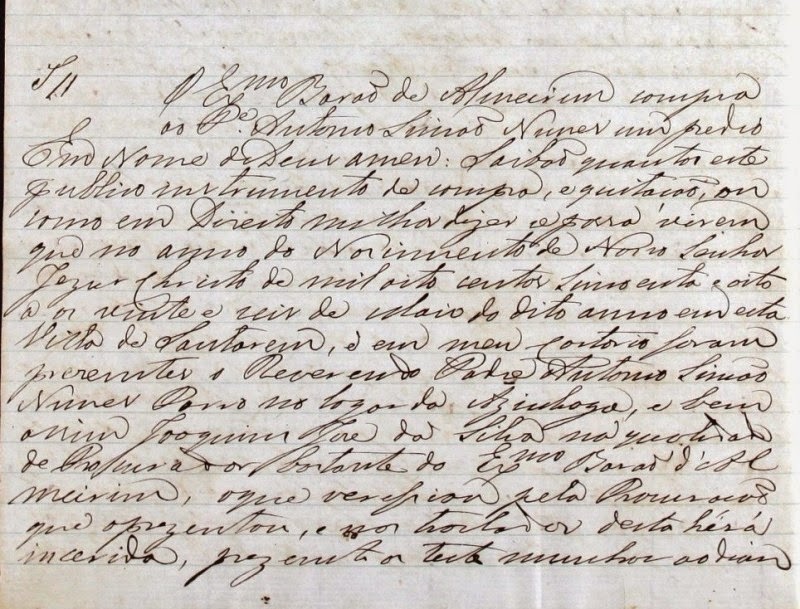 O Exmo Barão de Almeirim compra
ao Pe. Antonio Simão Nunes um predio
Em Nome de Deus amen: Saibão quantos este
publico instrumento de compra, e quitacão, ou
como em Direito milhor dizer se possa virem
que no anno do Nascimento de Nosso Senhor
Jezus Christo de mil oito centos sincoenta e oito
a os vinte e seis de Maio do dito anno em esta
Villa de Santarem, e em meu Cartorio foram
prezentes o Reverendo Padre Antonio Simão
Nunes no logar da Azinhaga, e bem
assim Joaquim Jose da Silva na qualidade
de Procurador bastante do Exmo Barão d'Al
meirim, o que verificou pela Procuracão
que aprezentou, e nos traslados desta hirá
incerida, prezentes os teste munhas ao dian